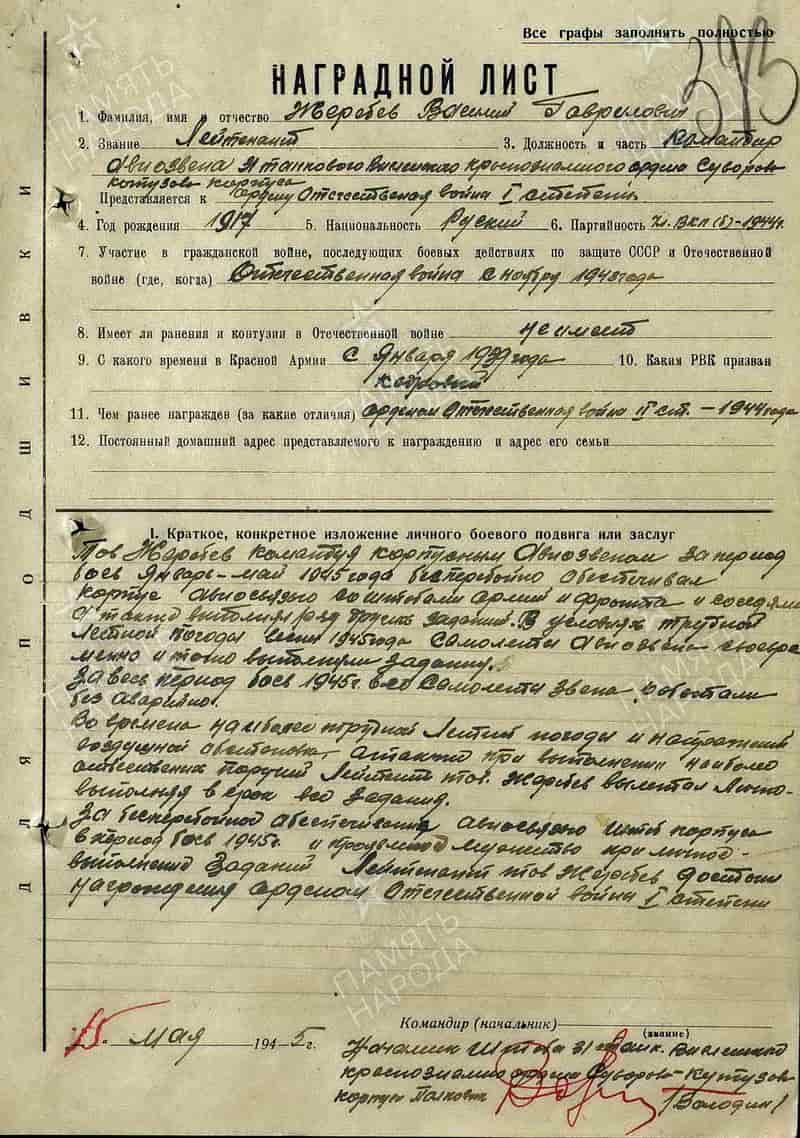 Все графы заполнять полностью
393
НАГРАДНОЙ ЛИСТ
1. Фамилия, имя и отчество Жеребев Василий Гаврилович
2. Звание Лейтенант 3. Должность и часть Командир
Авиозвена 31 танкового Висленского краснознаменного ордена Суворова
Кутузова корпуса
Представляется к ордену Отечественная война I степени
4. Год рождения 1917 5. Национальность Руский 6. Партийность Чл. ВКП(б)-1944г.
7. Участие в гражданской войне, последующих боевых действиях по защите СССР и Отечественной
войне (где, когда) Отечественная война с ноября 1943 года
8. Имеет ли ранения и контузии в Отечественной войне не имеет
9. С какого времени в Красной Армии с Января 1939 года 10. Каким РВК призван
Кадровый
11. Чем ранее награжден (за какие отличия) орденом Отечественная война II ст. - 1944 года
12. Постоянный домашний адрес представляемого к награждению и адрес его семьи
I. Краткое, конкретное изложение личного боевого подвига или заслуг
Тов Жеребев командуя корпусным Авиозвеном за период
боев Январь-май 1945 года бесперебойно обеспечивал
корпус авиосвязью со штабами армии и фронта и соседями
а также выполнял ряд других заданий. В условиях трудной
летной погоды 1945 года самолеты Авиозвена своевре
менно и точно выполнили задания.
За весь период боев 1945г. все самолеты звена работали
без аварийно.
Во времена наиболее трудной летной погоды и
воздушной обстановке а также при выполнении наиболее
ответственных поручений Лейтенант тов. Жеребев вылетал лично
выполняя в срок все задания.
За бесперебойное обеспечение авиосвязью штаб корпуса
в период боев 1945г. и мужество при личном
выполнении заданий Лейтенант тов Жеребев достоин
награждения орденом Отечественной война I степени
15. мая 1945г.
Командир (начальник)
(звание)
Начальник Штаба 31 танк. Висленского
краснознамен. ордена Суворова-Кутузова
корпуса Полковник /Володин/
ДЛЯ ПОДШИВКИ
ПАМЯТЬ НАРОДА